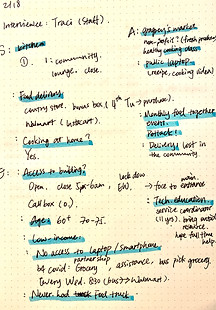 2/18
Interviewee: Traci (Staff).
S: kitchen
①. 1: community,
lounge, close.
Food delivery
country store, bonus box (4th Tu → produce).
Walmart
Cooking at home?
Yes.
Access to building?
Open, close 5pm-8am,
Call box
Age: 60+ 70-75.
Low-income.
No access to laptop/smartphone.
partnership
bg covid: Grocery, assistance, bus pick grocery,
every Wed. 830 (bus → Walmart).
Never had Food truck
A: grocery's market
non-profit? (fresh produce)
healthy cooking class
public laptop
(recipe, cooking video)
Monthly food together
event.
Potluck!
Delivery lost in
the community.
lock down
main
→ face to entrance
Tech education
service coordinator
(11 yrs). bring outside
resource.
hope full time
help.